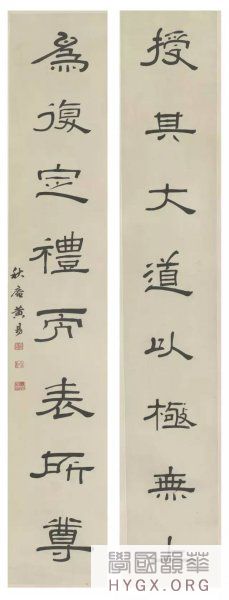 授其大道以極無
為復定禮而表所尊
秋庵黃易
學國韻華
HYGX.ORG